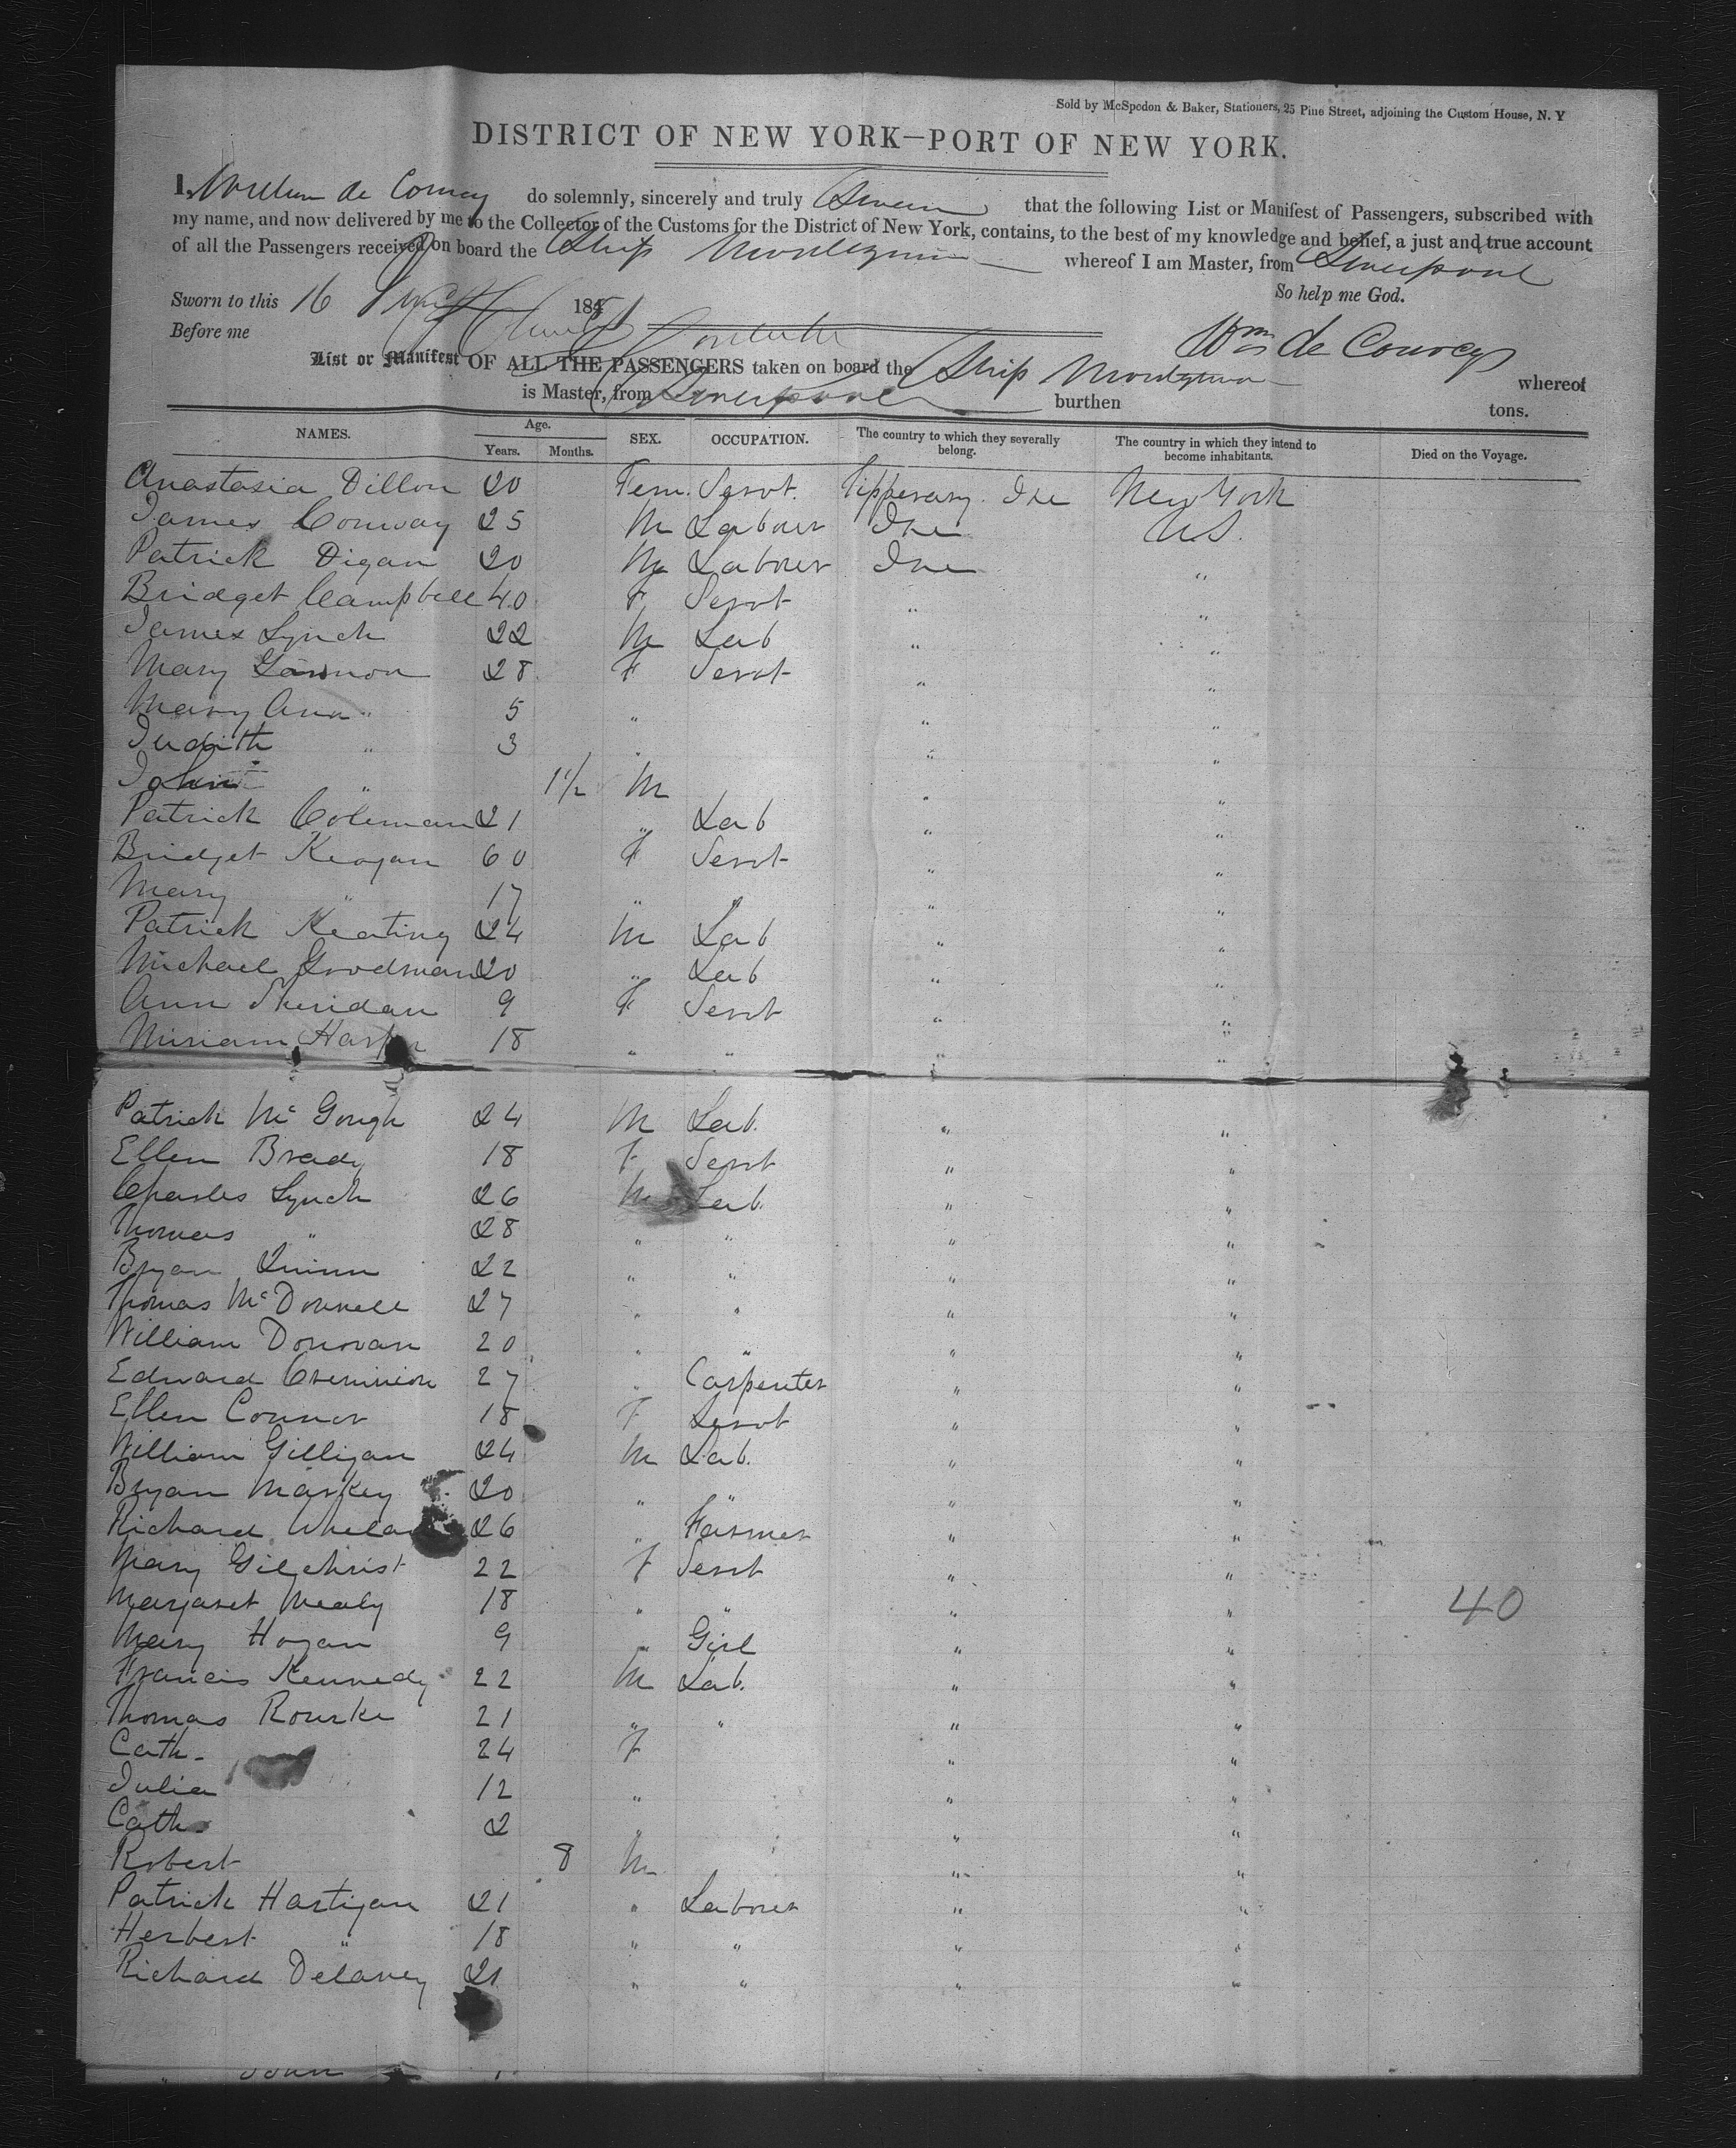 Sold by McSpedon & Baker, Stationers, 25 Pine Street, adjoining the Custom House, N. Y
DISTRICT OF NEW YORK—PORT OF NEW YORK.
I, William de Courcy do solemnly, sincerely and truly Swear that the following List or Manifest of Passengers, subscribed with
my name, and now delivered by me to the Collector of the Customs for the District of New York, contains, to the best of my knowledge and belief, a just and true account
of all the Passengers received on board the Ship Montezuma whereof I am Master, from Liverpool
So help me God.
Sworn to this 16 185
Before me
Wm de Courcy
List or Manifest OF ALL THE PASSENGERS taken on board the Ship Montezuma whereof
is Master, from Liverpool burthen tons.
NAMES. Age. Years. Months. SEX. OCCUPATION. The country to which they severally belong. The country in which they intend to become inhabitants. Died on the Voyage.
Anastasia Dillon 20 Fem. Servt. Tipperary. Ire New York
James Conway 25 M Labourer Ire U.S.
Patrick Digan 20 M Labourer Ire "
Bridget Campbell 40 F Servt " "
James Lynch 22 M Lab " "
Mary Gannon 28 F Servt " "
Mary Ann " 5 " " "
Judith " 3 " " "
John " 1 1/2 M " "
Patrick Coleman 21 " Lab " "
Bridget Keogan 60 F Servt " "
Mary " 17 " " " "
Patrick Keating 24 M Lab " "
Michael Goodman 20 " Lab " "
Ann Sheridan 9 F Servt " "
Miriam 18 " " " "
Patrick McGough 24 M Lab. " "
Ellen Brady 18 F Servt " "
Charles Lynch 26 M Lab. " "
Thomas " 28 " " " "
Bryan Quinn 22 " " " "
Thomas McDonnell 27 " " " "
William Donovan 20 " " " "
Edward 27 " Carpenter " "
Ellen Connor 18 F Servt " "
William Gilligan 24 M Lab. " "
Bryan Markey 20 " " " "
Richard Whelan 26 " Farmer " "
Mary Gilchrist 22 F Servt " "
Margaret Mealy 18 " " " " 40
Mary Hogan 9 " Girl " "
Francis Kennedy 22 M Lab. " "
Thomas Rourke 21 " " " "
Cath. 24 F " "
Julia 12 " " "
Cath. 2 " " "
Robert 8 M " "
Patrick Hartigan 21 " Labourer " "
Herbert " 18 " " " "
Richard Delaney 21 " " " "